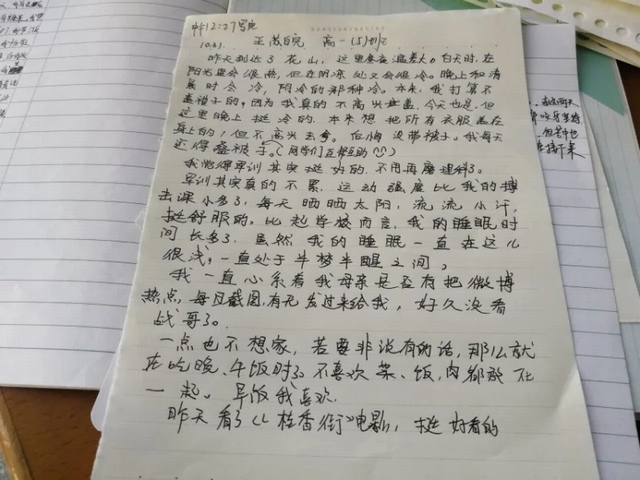 中午12:27写完
10.21. 王 晥 高一(5)班
昨天到达了花山,这里昼夜温差大。白天时,在
阳光里会很热,但在阴凉处又会很冷。晚上和清
晨时会冷,阴冷的那种冷。本来,我打算不
盖被子的,因为我真的不高兴盖,今天也是,但
这里晚上挺冷的,本来想把所有衣服盖在
身上的,但不高兴去拿。后悔没带被子,我每天
还得叠被子。(同学们互帮互助)
我觉得军训其实挺好的,不用再磨理科了。
军训其实真的不累,运动强度比我的搏
击课小多了,每天晒晒太阳,流流小汗,
挺舒服的。比起学校而言,我的睡眠时
间长多了,虽然我的睡眠一直在这儿
很浅,一直处于半梦半醒之间。
我一直心系着我母亲是否有把微博
热点,每日截图,有无发过来给我,好久没看
战哥了。
一点也不想家,若要非没有的话,那么就
在吃晚、午饭时了。不喜欢菜、饭,肉都放在
一起。早饭我喜欢。
昨天看了《桂香街》电影,挺好看的